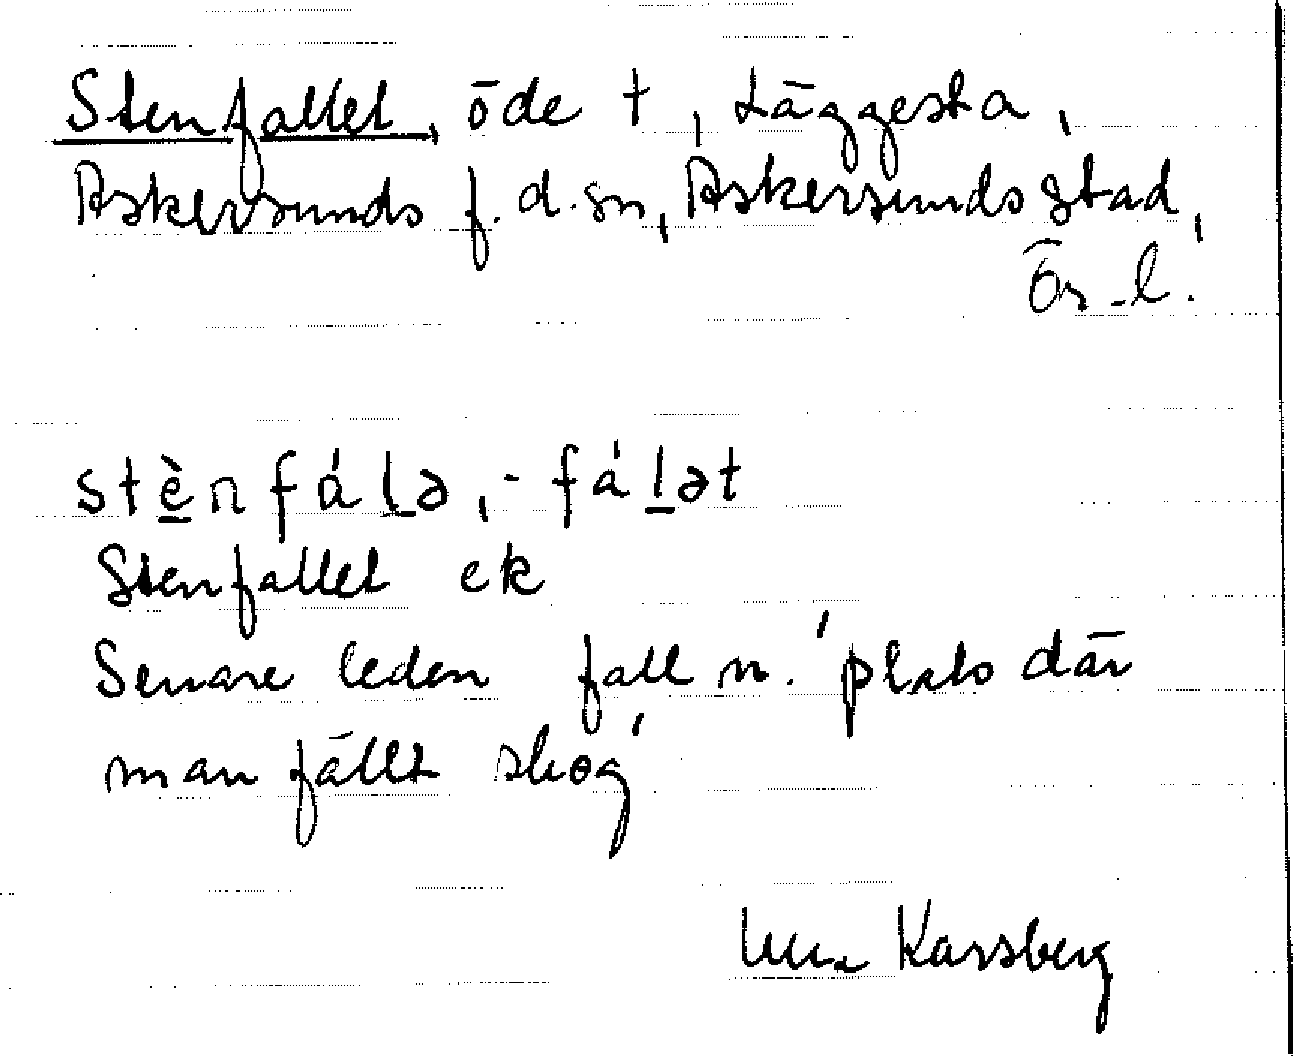 Stenfallet, öde t, Läggesta,
Askersunds f.d.sn, Askersunds stad,
Ör-l.
stènfálə, -fálət
Stenfallet ek
Senare leden fall n. 'plats där
man fällt skog'
Karsberg